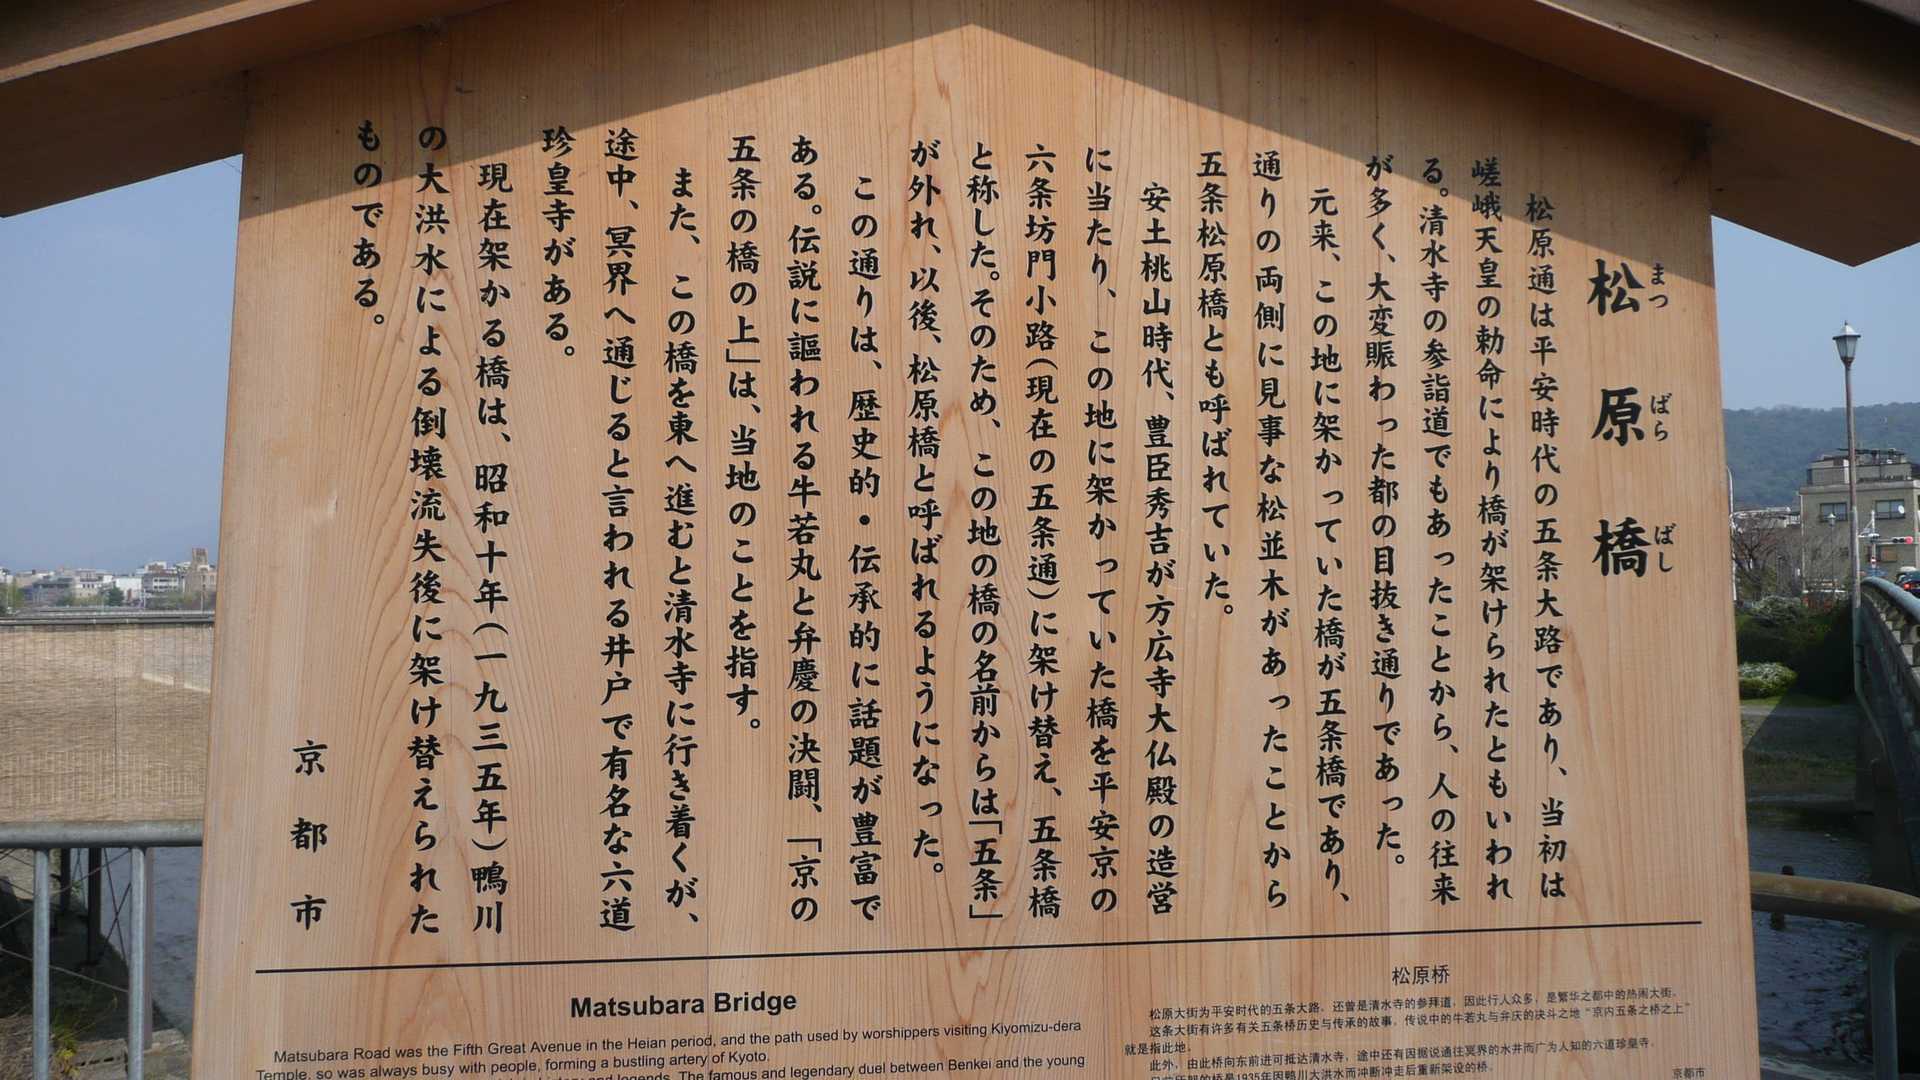 松原橋
まつばらばし
松原通は平安時代の五条大路であり、当初は
嵯峨天皇の勅命により橋が架けられたともいわれ
る。清水寺の参詣道でもあったことから、人の往来
が多く、大変賑わった都の目抜き通りであった。
元来、この地に架かっていた橋が五条橋であり、
通りの両側に見事な松並木があったことから
五条松原橋とも呼ばれていた。
安土桃山時代、豊臣秀吉が方広寺大仏殿の造営
に当たり、この地に架かっていた橋を平安京の
六条坊門小路(現在の五条通)に架け替え、五条橋
と称した。そのため、この地の橋の名前からは「五条」
が外れ、以後、松原橋と呼ばれるようになった。
この通りは、歴史的・伝承的に話題が豊富で
ある。伝説に謳われる牛若丸と弁慶の決闘、「京の
五条の橋の上」は、当地のことを指す。
また、この橋を東へ進むと清水寺に行き着くが、
途中、冥界へ通じると言われる井戸で有名な六道
珍皇寺がある。
現在架かる橋は、昭和十年(一九三五年)鴨川
の大洪水による倒壊流失後に架け替えられた
ものである。
京都市
Matsubara Bridge
Matsubara Road was the Fifth Great Avenue in the Heian period, and the path used by worshippers visiting Kiyomizu-dera
Temple, so was always busy with people, forming a bustling artery of Kyoto.
and legends. The famous and legendary duel between Benkei and the young
松原桥
松原大街为平安时代的五条大路。还曾是清水寺的参拜道。因此行人众多，是繁华之都中的热闹大街。
这条大街有许多有关五条桥历史与传承的故事。传说中的牛若丸与弁庆的决斗之地“京内五条之桥之上”
就是指此地。
此外，由此桥向东前进可抵达清水寺，途中还有因据说通往冥界的水井而广为人知的六道珍皇寺。
桥是1935年因鸭川大洪水而冲断冲走后重新架设的桥。
京都市